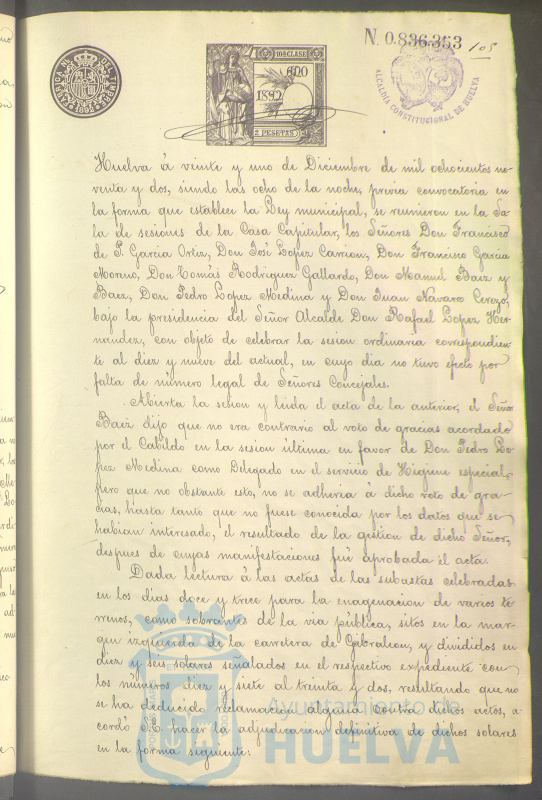 N. 0.836.353
105
10ª CLASE
AÑO
1892
2 PESETAS
ALCALDÍA CONSTITUCIONAL DE HUELVA
Huelva á veinte y uno de Diciembre de mil ochocientos no-
venta y dos, siendo las ocho de la noche, previa convocatoria en
la forma que establece la Ley municipal, se reunieron en la Sa-
la de sesiones de la Casa Capitular, los Señores Don Francisco
de P. Garcia Ortiz, Don José Lopez Carrion, Don Francisco Garcia
Moreno, Don Tomás Rodriguez Gallardo, Don Manuel Baez y
Baez, Don Pedro Lopez Medina y Don Juan Navarro Cerezo,
bajo la presidencia del Señor Alcalde Don Rafael Lopez Her-
nandez, con objeto de celebrar la sesion ordinaria correspondien-
te al diez y nueve del actual, en cuyo dia no tuvo efecto por
falta de número legal de Señores Concejales.
Abierta la sesion y leida el acta de la anterior, el Señor
Baez dijo que no era contrario al voto de gracias acordado
por el Cabildo en la sesion última en favor de Don Pedro Lo-
pez Medina como Delegado en el servicio de Higiene especial,
pero que no obstante esto, no se adheria á dicho voto de gra-
cias, hasta tanto que no fuese conocida por los datos que se
habian interesado, el resultado de la gestion de dicho Señor,
despues de cuyas manifestaciones fué aprobada el acta.
Dada lectura á las actas de las subastas celebradas
en los dias doce y trece para la enagenacion de varios te-
rrenos, como sobrantes de la via pública, sitos en la mar-
gen izquierda de la carretera de Gibraleon, y divididos en
diez y seis solares señalados en el respectivo expediente con
los números diez y siete al treinta y dos, resultando que no
se ha deducido reclamacion alguna contra dichos actos, a-
cordó S.E. hacer la adjudicacion definitiva de dichos solares
en la forma siguiente:
Ayuntamiento de
HUELVA